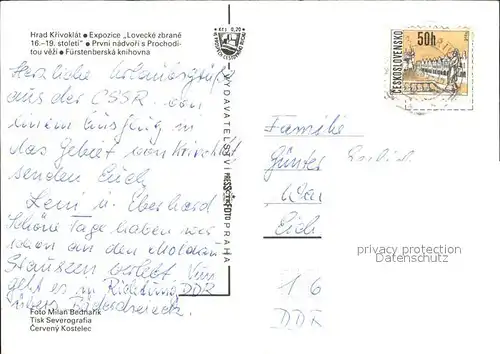 Hrad Křivoklát • Expozice „Lovecké zbraně
16.–19. století" • První nádvoří s Prochodi-
tou věží • Fürstenberská knihovna
Kčs 0,20
Herzliche Urlaubsgrüße
aus der ČSSR von
einem Ausflug in
das Gebiet von Křivoklát
senden Euch
Leni u. Eberhard
Schöne Tage haben wir
schon an den Moldau
Stauseen verlebt Nun
geht es in Richtung DDR
übers
Foto Milan Bednařík
Tisk Severografia
Červený Kostelec
VYDAVATELSTVÍ PRESSFOTO PRAHA
ČESKOSLOVENSKO
50h
Familie
Günter
Eich
privacy protection
Datenschutz
DDR